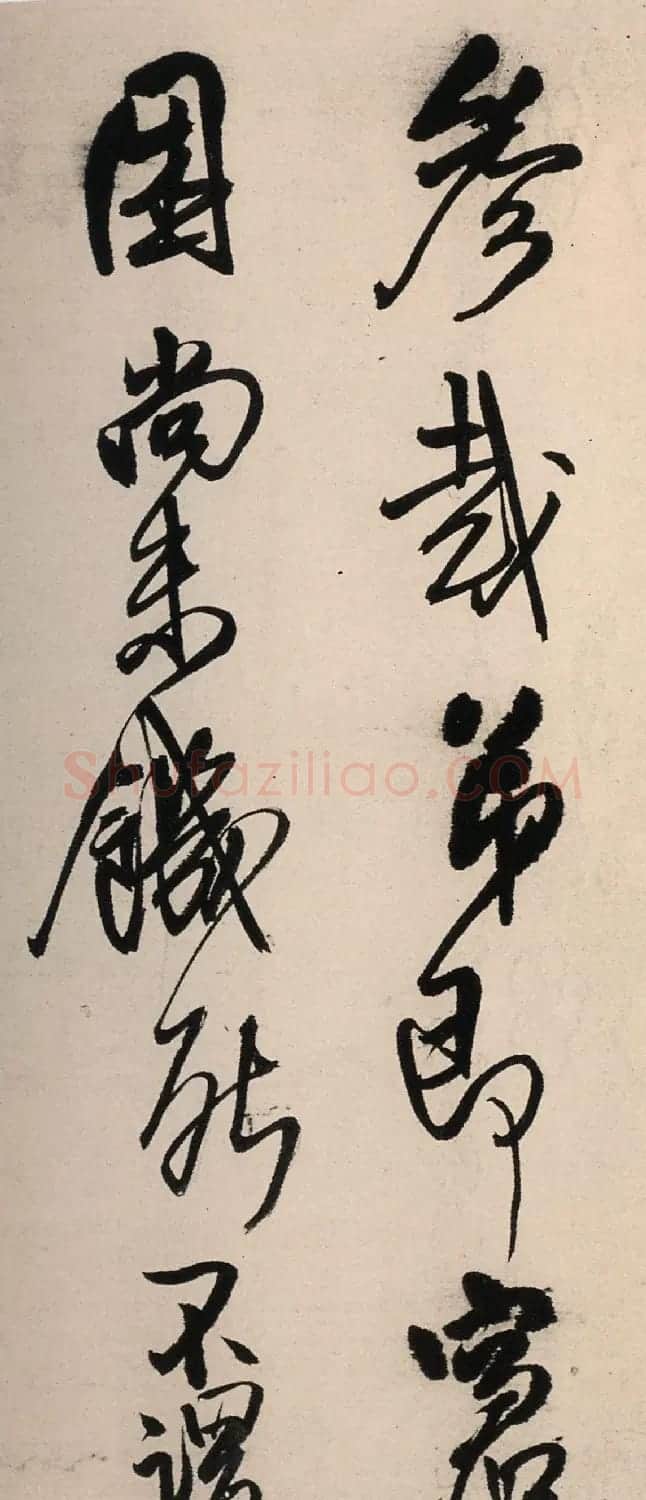 參哉弟即窘
困尚未饑死不謂
Shufaziliao.COM